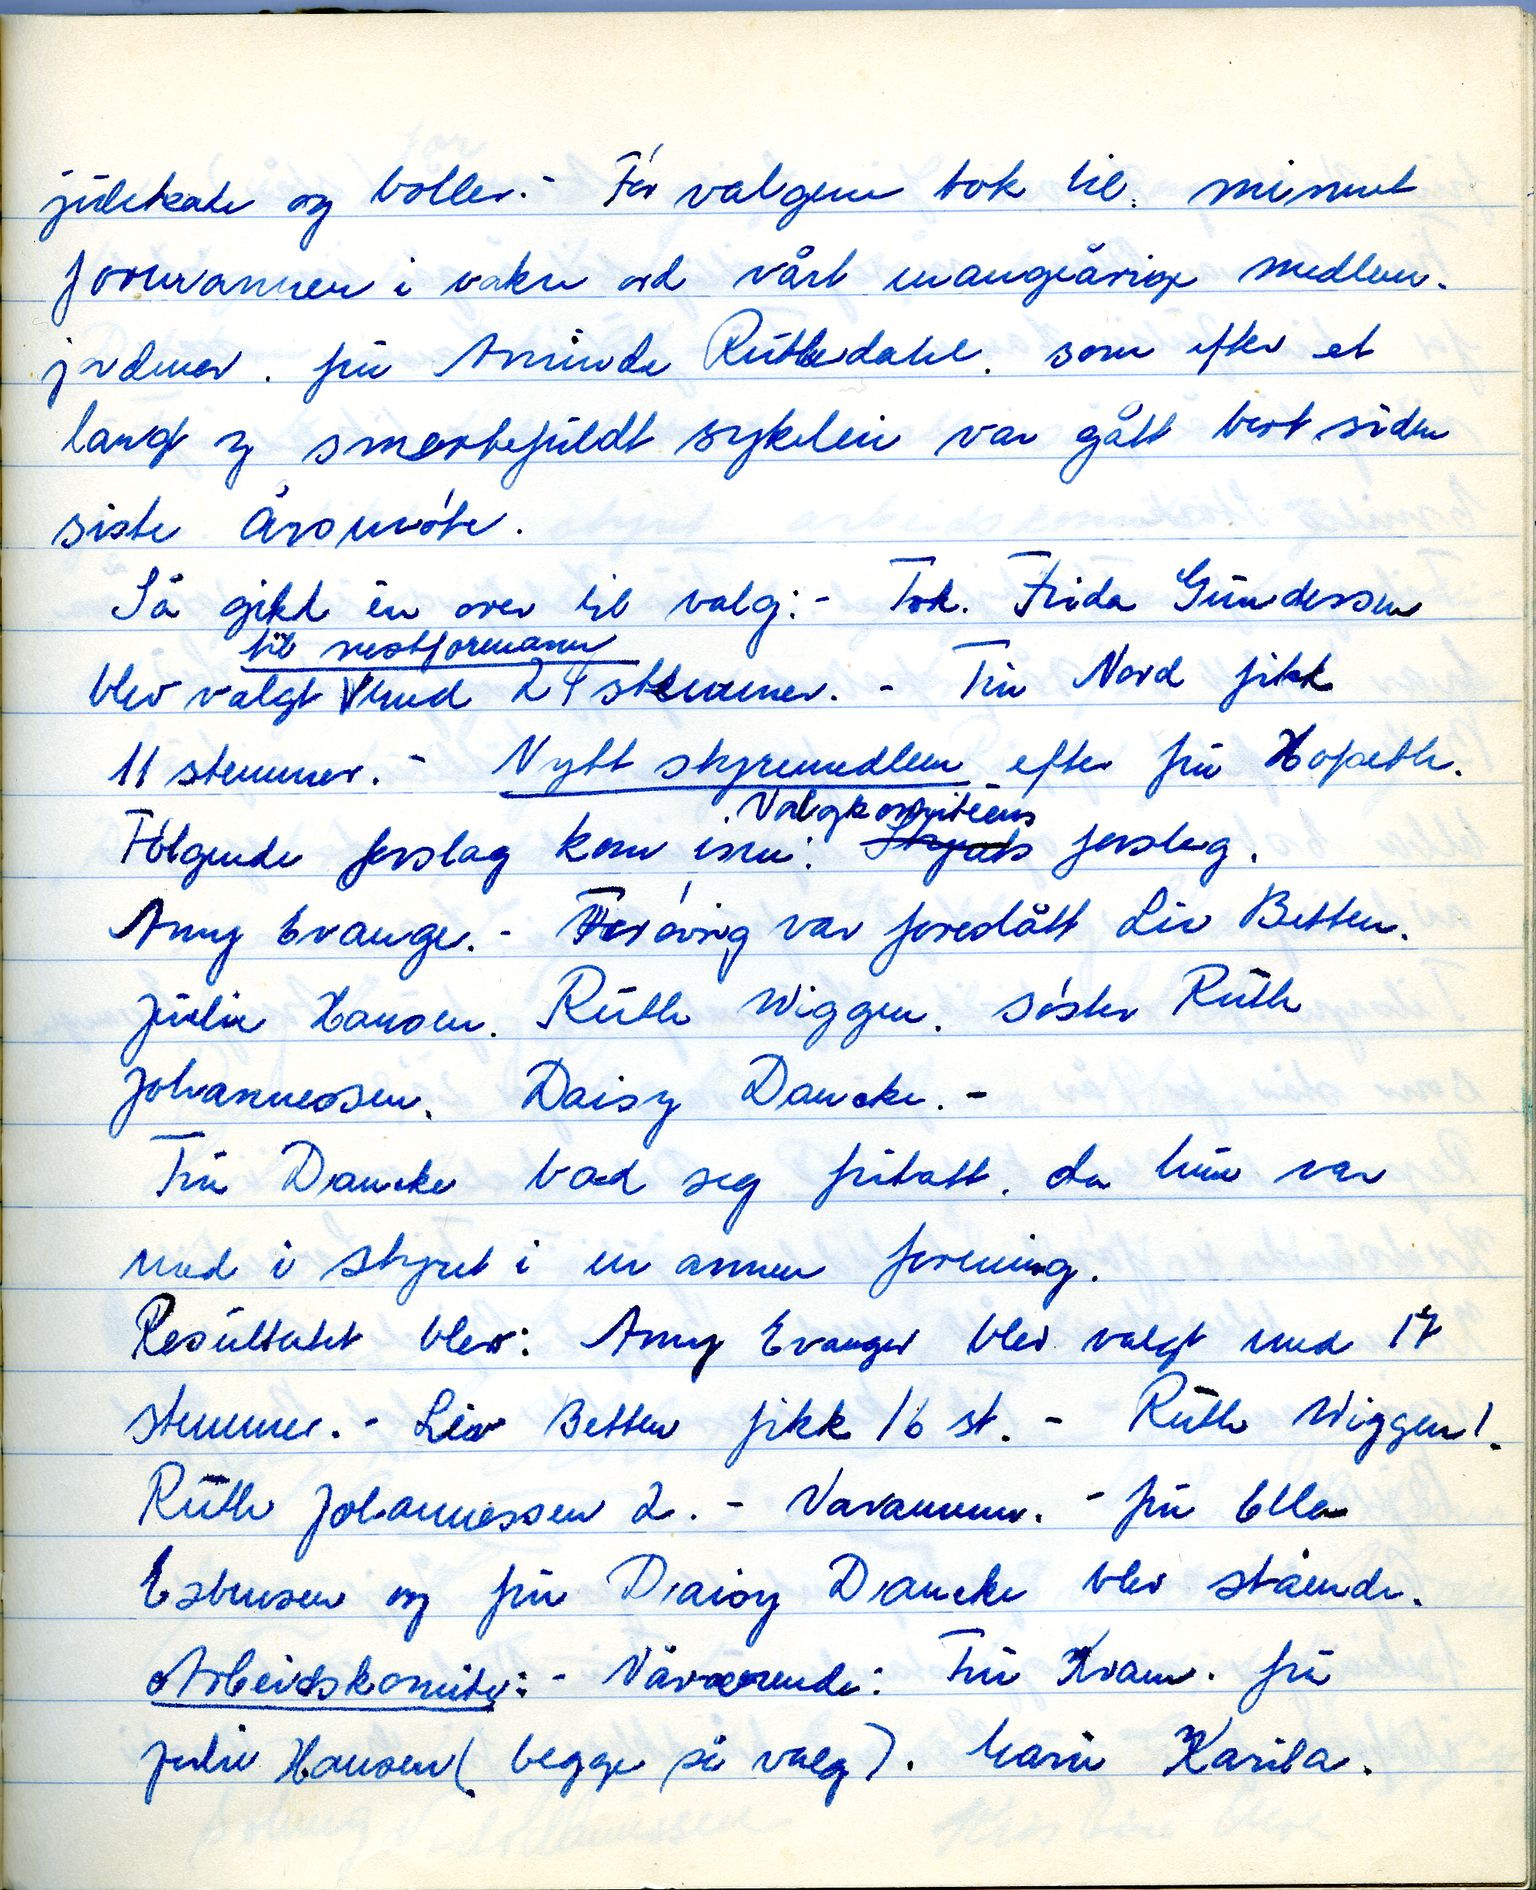 julekake og boller.- Før valgene tok til, minnet
formannen i vakre ord vårt mangeårige medlem.
jordmor. fru Aminda Rutledahl. som efter et
langt og smertefuldt sykeleie var gått bort siden
siste Årsmøte.
Så gikk en over til valg:- Frk. Frida Gundersen
til nestformann
blev valgt med 24 stemmer. - Fru Nord fikk
11 stemmer. - Nytt styremedlem efter fru Hopseth.
Valgkomitéens
Følgende forslag kom inn: Styrets forslag.
Anny Evanger. - Forøvrig var foreslått Liv Betten.
Julie Hansen. Ruth Wiggen. søster Ruth
Johannessen. Daisy Dancke. -
Fru Dancke bad seg fritatt, da hun var
med i styret i en annen forening.
Resultatet blev: Anny Evanger blev valgt med 17
stemmer. - Liv Betten fikk 16 st. - Ruth Wiggen 1.
Ruth Johannessen 2. - Varamenn. - fru Ella
Estensen og fru Daisy Dancke blev stående.
Arbeidskomite: - Nåværende: Fru Kram. fru
Julie Hansen (begge på valg). Marie Karila.